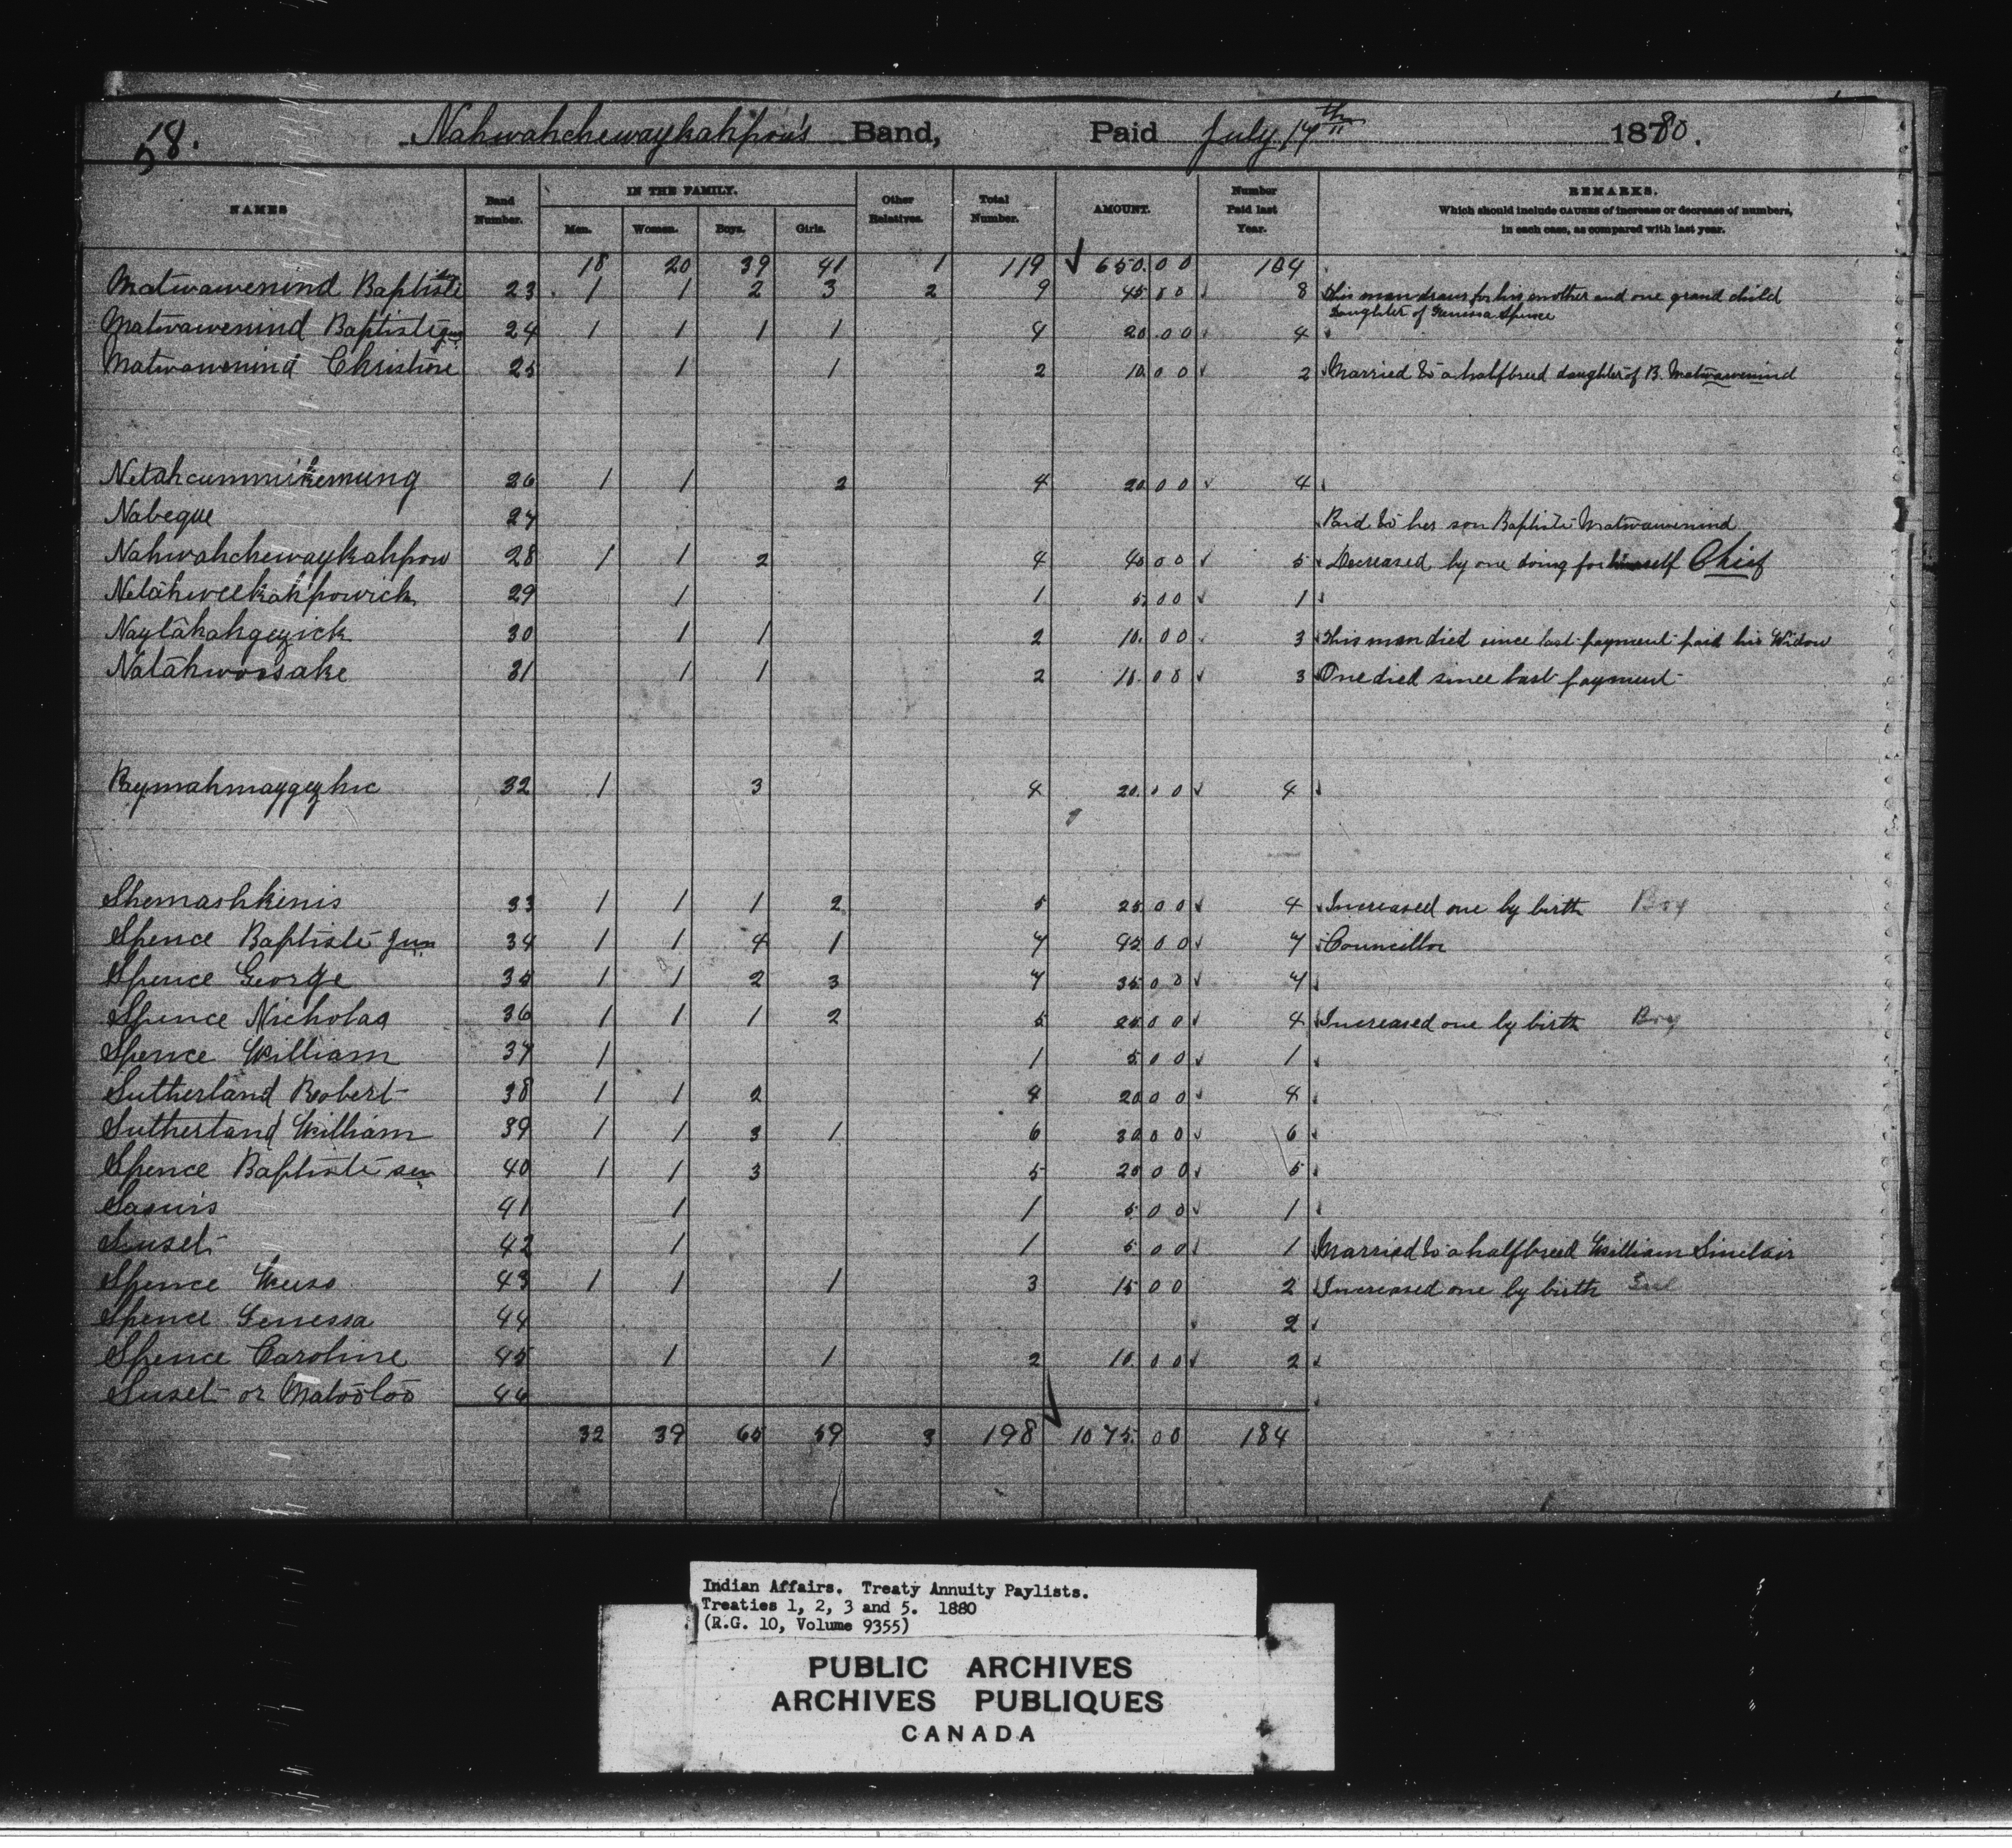 58. Nahwahchewaykahpow's Band, Paid July 17th 1880.
NAMES Band Number. IN THE FAMILY. Men. Women. Boys. Girls. Other Relatives. Total Number. AMOUNT. Number Paid last Year. REMARKS.
Which should include CAUSES of increase or decrease of numbers,
in each case, as compared with last year.
18 20 39 41 1 119 650.00 104
Matwawenind Baptiste 23 1 1 2 3 2 9 45 00 8 This man draws for his mother and one grand child
Daughter of Genessa Spence
Matwawenind Baptiste jun 24 1 1 1 1 4 20.00 4
Matwawenind Christine 25 1 1 2 10 00 2 Married to a halfbreed daughter of B. Matwawenind
Netahcummikemung 26 1 1 2 4 20 00 4
Nabeque 27 Paid to her son Baptiste Matwawenind
Nahwahchewaykahpow 28 1 1 2 4 40 00 5 Decreased by one doing for himself Chief
Netahweekahpowick 29 1 1 5.00 1
Naytahahgezick 30 1 1 2 10.00 3 This man died since last payment paid his Widow
Natahwoosake 31 1 1 2 10.00 3 One died since last payment
Paymahmaygezhic 32 1 3 4 20.00 4
Shemashkinis 33 1 1 1 2 5 25 00 4 Increased one by birth Boy
Spence Baptiste Jun 34 1 1 4 1 7 45 00 7 Councillor
Spence George 35 1 1 2 3 7 35 00 7
Spence Nicholas 36 1 1 1 2 5 25 00 4 Increased one by birth Boy
Spence William 37 1 1 5 00 1
Sutherland Robert 38 1 1 2 4 20 00 4
Sutherland William 39 1 1 3 1 6 30 00 6
Spence Baptiste sen 40 1 1 3 5 25 00 5
Sasuis 41 1 1 5 00 1
Suset 42 1 1 5 00 1 Married to a halfbreed William Sinclair
Spence 43 1 1 1 3 15 00 2 Increased one by birth Girl
Spence Genessa 44 2
Spence Caroline 45 1 1 2 10 00 2
Suset or Matootoo 46
32 39 65 59 3 198 1075.00 184
Indian Affairs. Treaty Annuity Paylists.
Treaties 1, 2, 3 and 5. 1880
(R.G. 10, Volume 9355)
PUBLIC ARCHIVES
ARCHIVES PUBLIQUES
CANADA